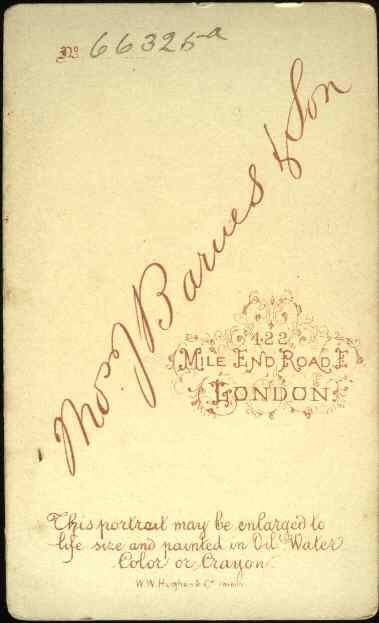 No 66325a
Thos. J Barnes & Son
422,
MILE END ROAD E
LONDON.
This portrait may be enlarged to
life size and painted in Oil Water
Color or Crayon.
W.W. Hughes & Co